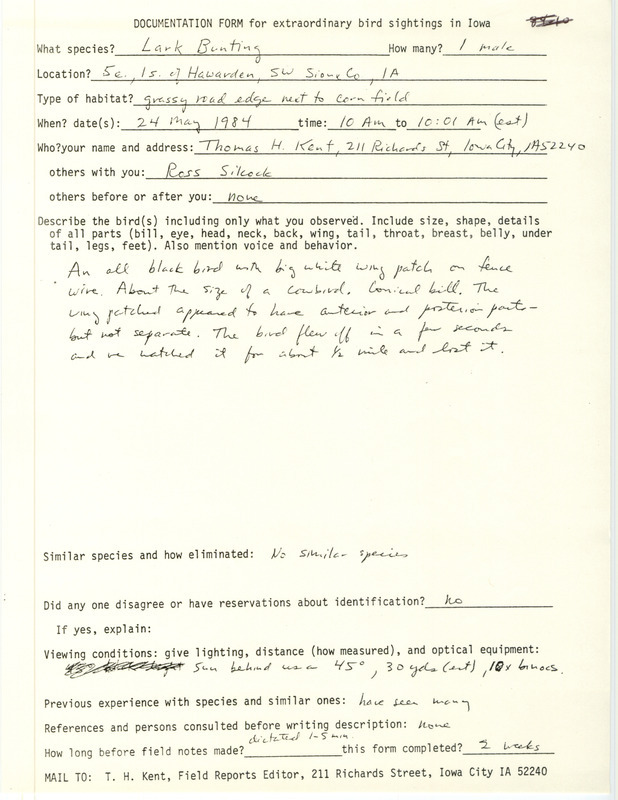 DOCUMENTATION FORM for extraordinary bird sightings in Iowa
What species? Lark Bunting How many? 1 male
Location? 5e., 1s. of Hawarden, SW Sioux Co, IA
Type of habitat? grassy road edge next to corn field
When? date(s): 24 May 1984 time: 10 Am to 10:01 Am (est)
Who?your name and address: Thomas H. Kent, 211 Richards St, Iowa City, IA52240
others with you: Ross Silcock
others before or after you: none
Describe the bird(s) including only what you observed. Include size, shape, details
of all parts (bill, eye, head, neck, back, wing, tail, throat, breast, belly, under
tail, legs, feet). Also mention voice and behavior.
An all black bird with big white wing patch on fence
wire. About the size of a cowbird. Conical bill. The
wing patched appeared to have anterior and posterior parts -
but not separate. The bird flew off in a few seconds
and we watched it for about ½ mile and lost it.
Similar species and how eliminated: No similar species
Did any one disagree or have reservations about identification? no
If yes, explain:
Viewing conditions: give lighting, distance (how measured), and optical equipment:
Sun behind us @ 45°, 30 yds (est), 10x binocs.
Previous experience with species and similar ones: have seen many
References and persons consulted before writing description: none
How long before field notes made? dictated 1-5 min. this form completed? 2 weeks
MAIL TO: T. H. Kent, Field Reports Editor, 211 Richards Street, Iowa City IA 52240